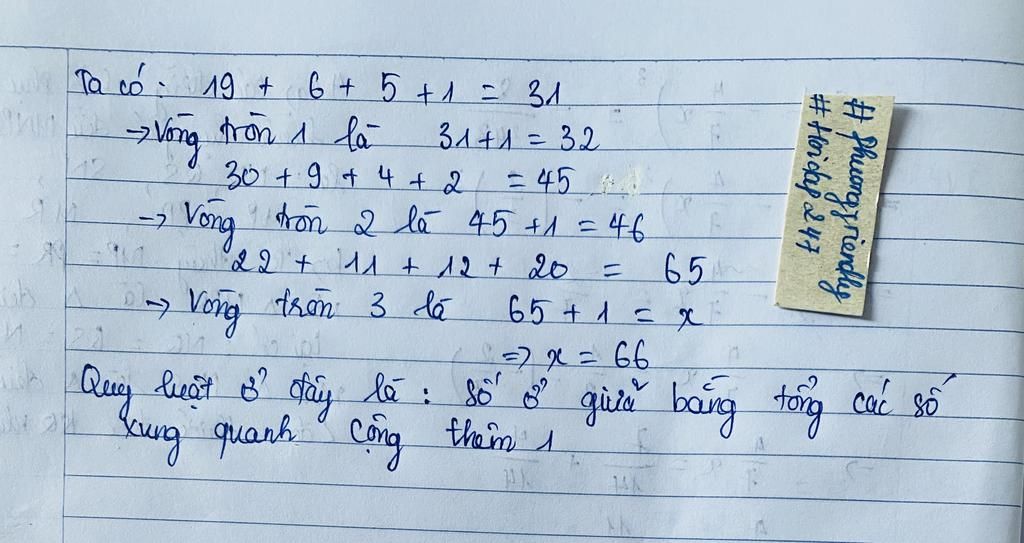 Ta có: 19 + 6 + 5 + 1 = 31
→ Vòng tròn 1 là 31 + 1 = 32
30 + 9 + 4 + 2 = 45
→ Vòng tròn 2 là 45 + 1 = 46
22 + 11 + 12 + 20 = 65
→ Vòng tròn 3 là 65 + 1 = x
=> x = 66
Quy luật ở đây là : số ở giữa bằng tổng các số
xung quanh cộng thêm 1
# phuongfriendly
# Hoidap247